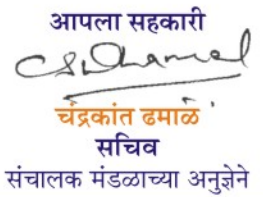 आपला सहकारी
चंद्रकांत ढमाळे
सचिव
संचालक मंडळाच्या अनुज्ञेने